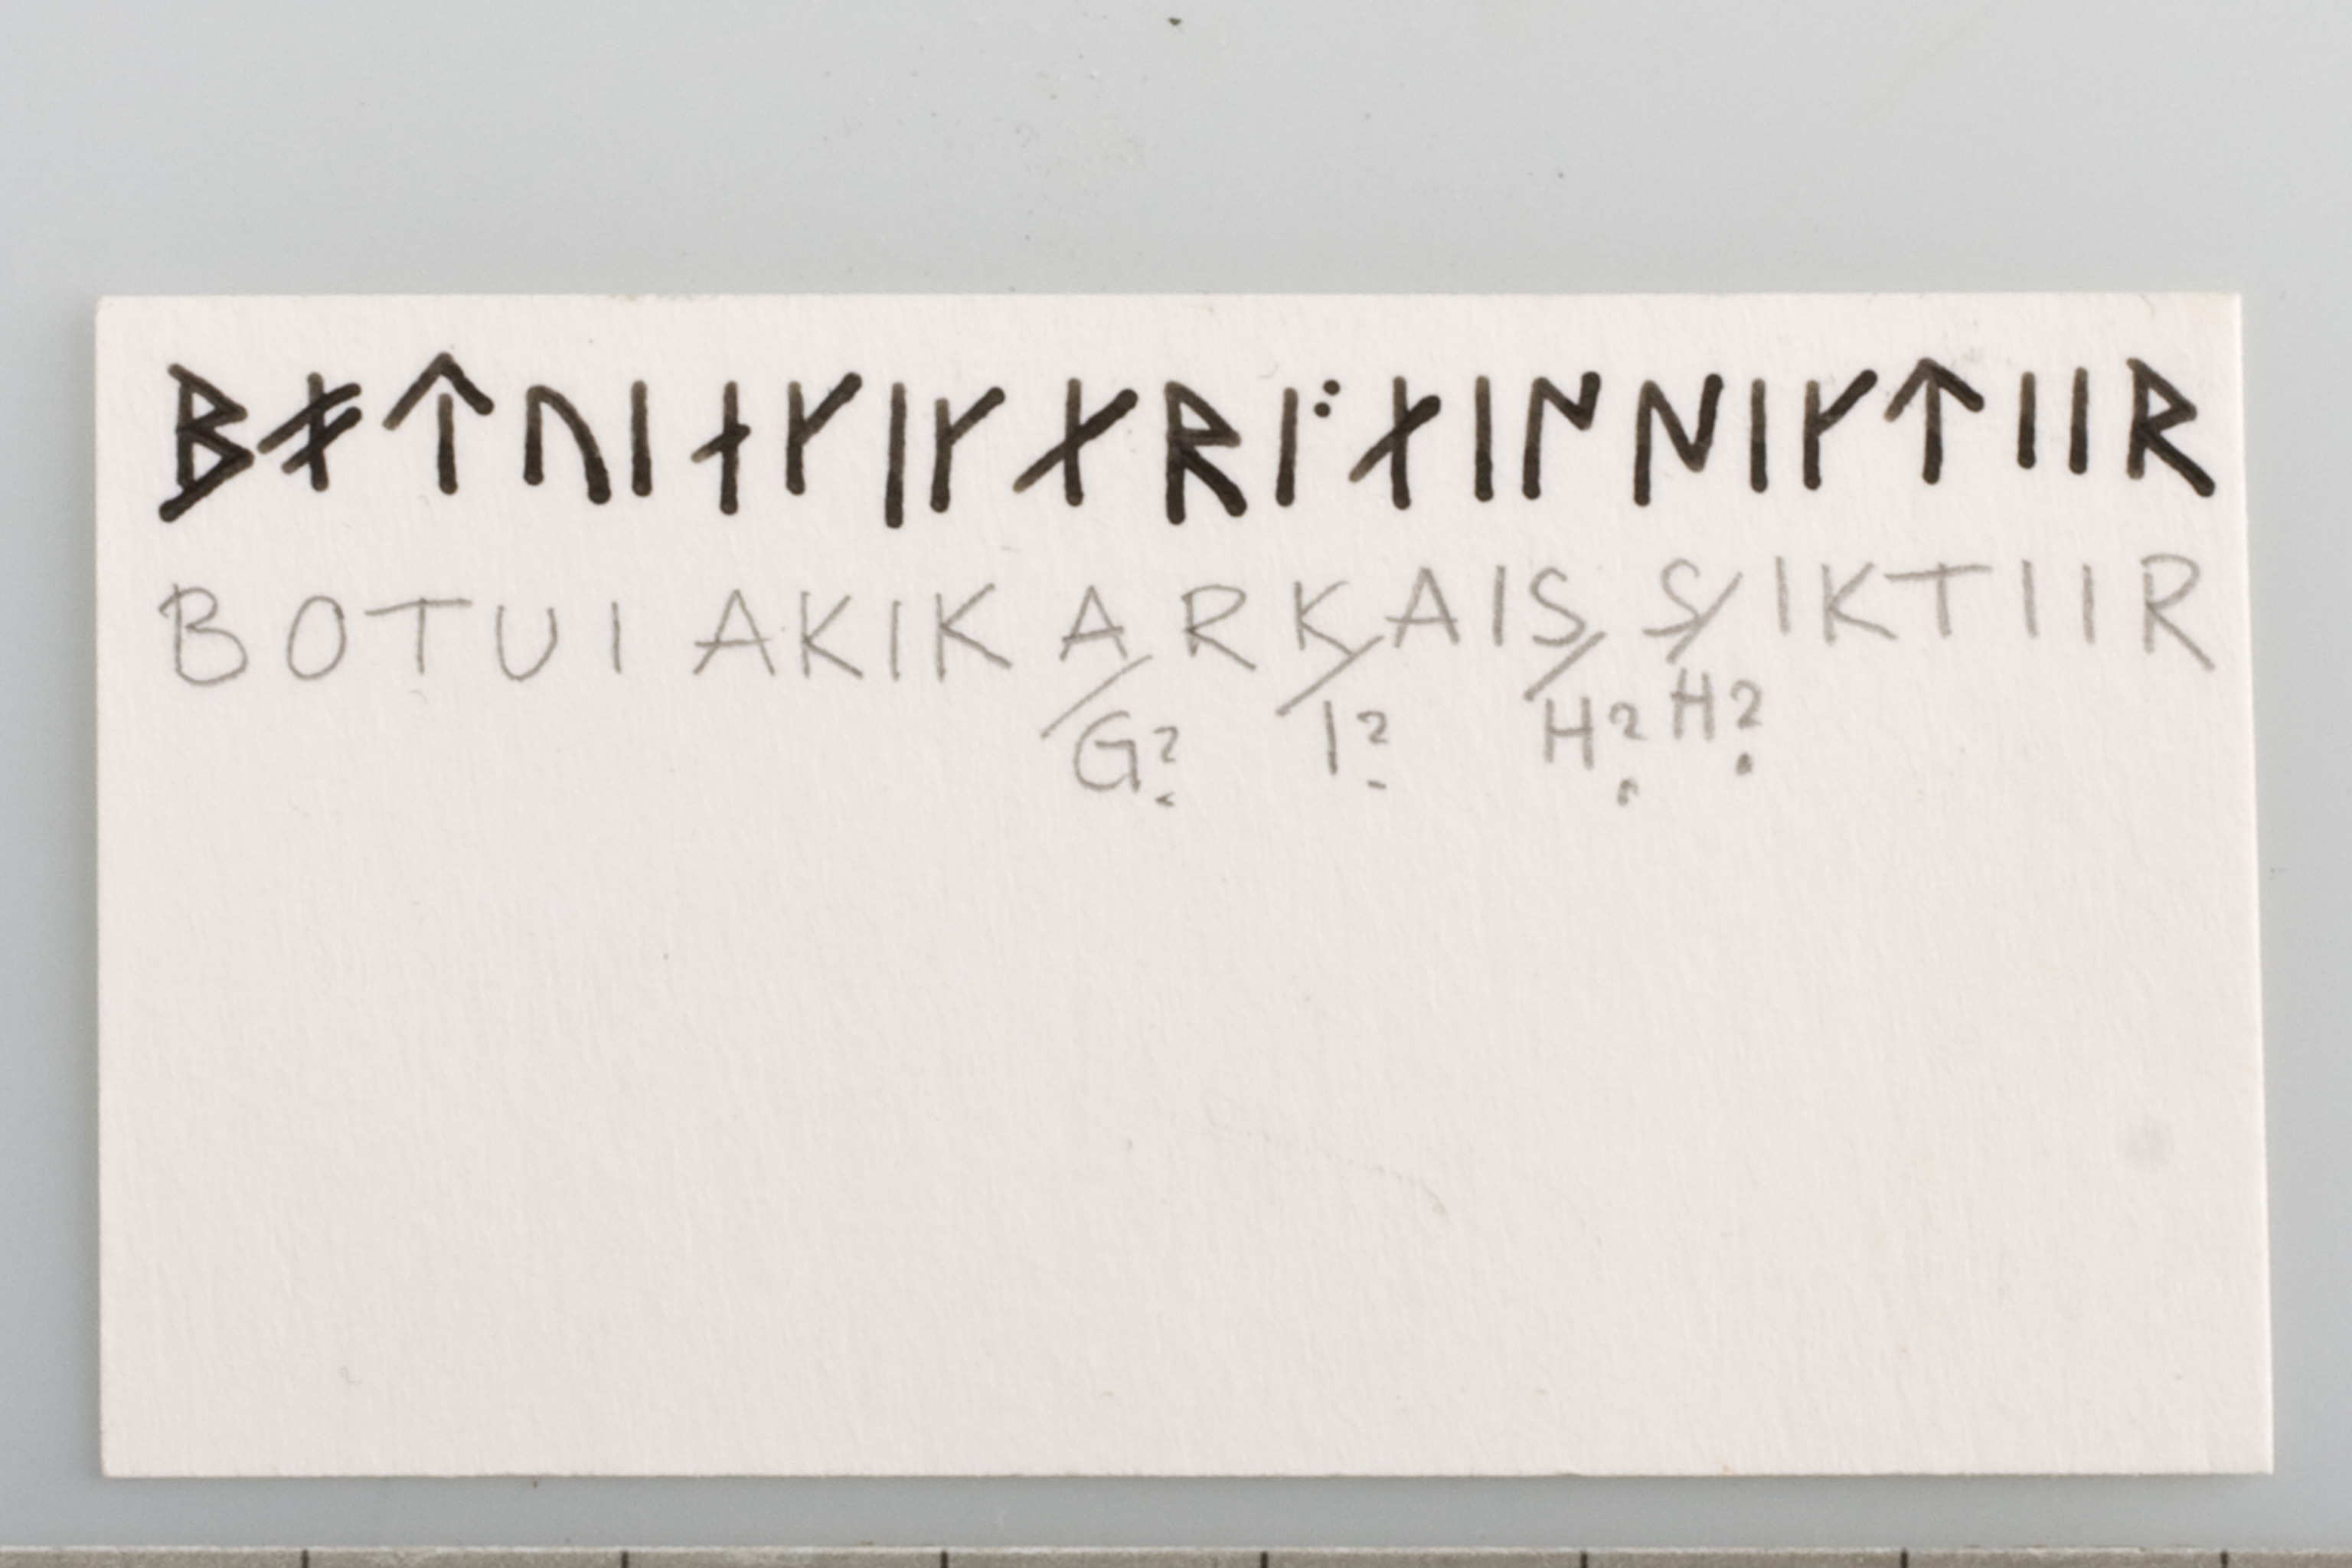 ᛒᚭᛏᚢᛁᛆᚴᛁᚴᛆᚱᛁ:ᛆᛁᛋᛋᛁᚴᛏᛁᛁᚱ
BOTUI AKIKARKAISSIKTIIR
G? I? H? H?